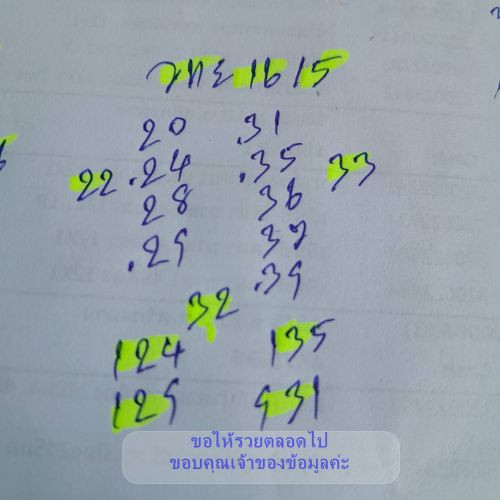 16 15
20 .31
.24 .35
22 33
28 36
.29 37
.39
32
124 135
129 931
ขอให้รวยตลอดไป
ขอบคุณเจ้าของข้อมูลค่ะ